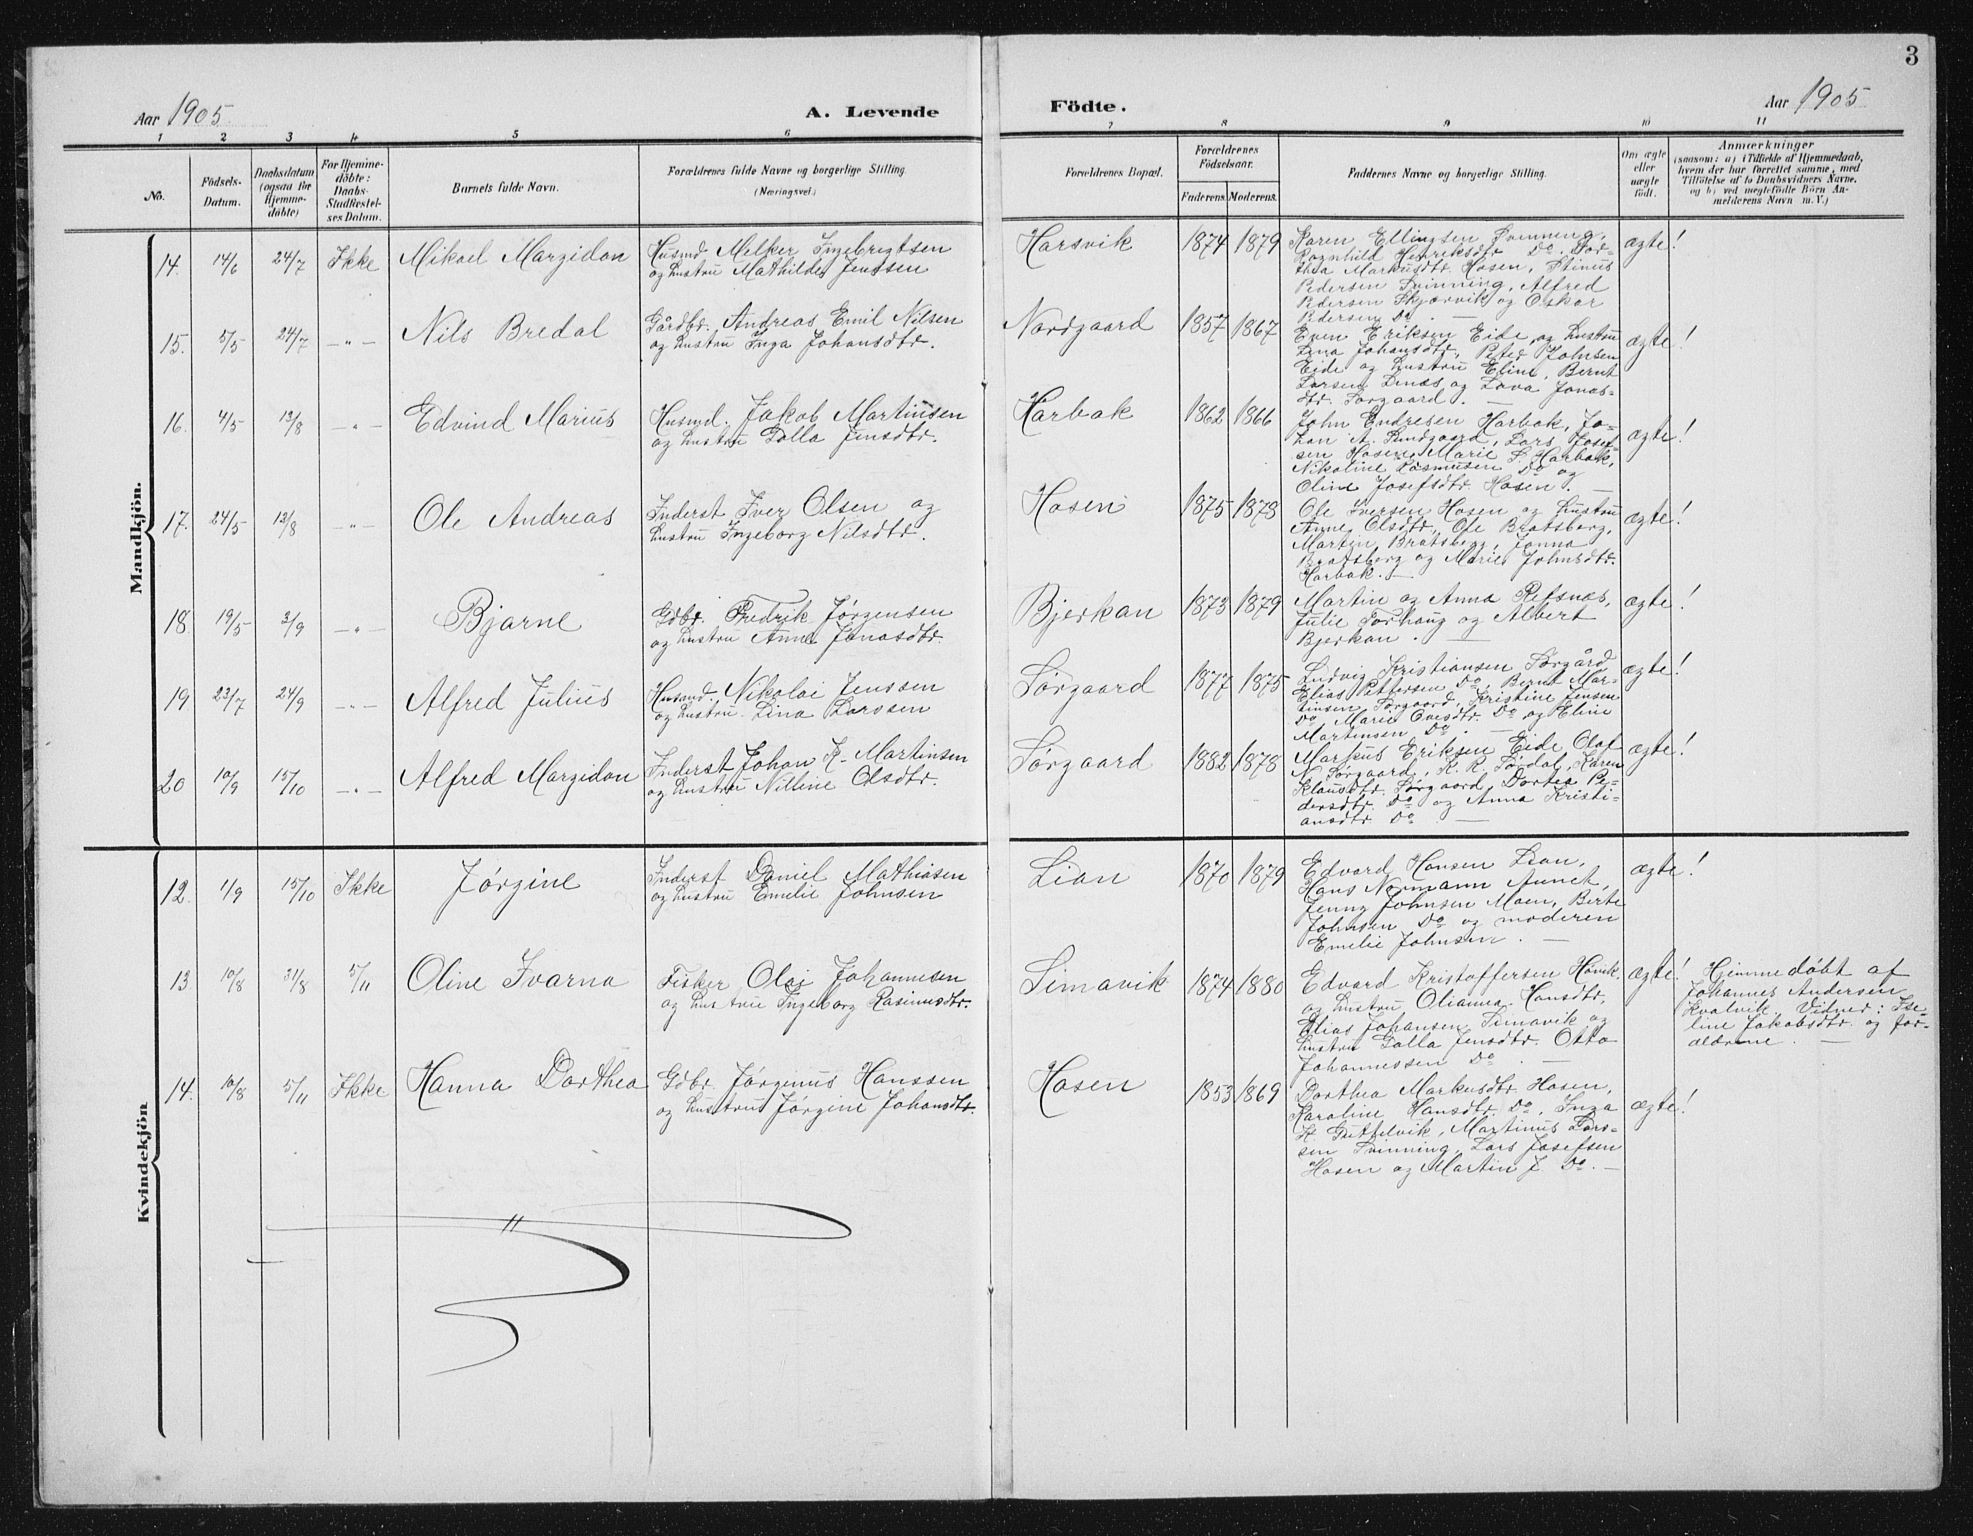 3
Aar 1905
A. Levende
Födte.
Aar 1905
1 2 3 4 5 6 7 8 9 10 11
No.
Födsels-
Datum.
Daabsdatum
(ogsaa for
Hjemme-
döbte)
For Hjemme-
döbte:
Daabs-
Stadfæstel-
ses Datum.
Barnets fulde Navn.
Forældrenes fulde Navne og borgerlige Stilling
(Næringsvei.)
Forældrenes Bopæl.
Forældrenes
Födselsaar.
Faderens. Moderens.
Faddernes Navne og borgerlige Stilling.
Om ægte
eller
uægte
födt.
Anmærkninger
(saasom: a) i Tilfælde af Hjemmedaab,
hvem der har forrettet samme, med
Tilföielse af to Daabsvidners Navne,
og b) ved uegtefödte Börn An-
melderens Navn m. V.)
Mandkjön.
14. 14/6 24/7 Ikke Mikael Margidon
Husmd Melker Ingebrigtsen
og hustru Mathilde Jenssen
Harsvik 1874 1879
Karen Ellingsen Svinning,
Ragnhild Henriksdtr Do, Dor-
thea Markusdtr. Hosen, Stinus
Pedersen Svinning, Alfred
Pedersen Skjærvik og Oskar
Pedersen Do. —
ægte!
15. 5/5 24/7 -"- Nils Bredal
Gårdbr. Andreas Emil Nilsen
og hustru Inga Johansdtr.
Nordgaard 1857 1867
Even Eriksen Eide og hustru
Lina Johansdtr, Peter Johnsen
Eide og hustru Eline, Bernt
Larsen Lenæs og Lava Jonas-
dtr. Sørgaard. —
ægte!
16. 4/5 13/8 -"- Edvind Marius
Husmd. Jakob Martinsen
og hustru Galla Jensdtr.
Harbak 1862 1866
John Endresen Harbak, Jo-
han A. Sundgaard, Lars Josef-
sen Hosen, Marie S. Harbak,
Nikoline Rasmusen Do og
Oline Josefsdtr. Hosen. —
ægte!
17. 24/5 13/8 -"- Ole Andreas
Inderst Iver Olsen og
hustru Ingeborg Nilsdtr.
Hosen 1875 1873
Ole Iversen Hosen og hustru
Anne Olsdtr, Ole Bratsberg,
Martin Bratsberg, Jonna
Bratsberg og Marie Johnsdtr.
Harbak. —
ægte!
18. 19/5 3/9 -"- Bjarne
Gdbr. Fredrik Jørgensen
og hustru Anna Jonasdtr.
Bjerkan 1873 1879
Martin og Anna Refsnæs,
Julie Torhaug og Albert
Bjerkan. —
ægte!
19 23/7 24/9 -"- Alfred Julius
Husmd. Nikolai Jenssen
og hustru Lina Larssen
Sørgaard 1877 1875
Ludvig Kristiansen Sørgård
Elias Pettersen Do, Bernt Mar-
tinsen Sørgaard, Kristine Jensen
Do, Marie Ovesdtr. Do og Eline
Martinsen Do. —
ægte!
20 10/9 15/10 -"- Alfred Margidon
Inderst Johan K. Martinsen
og hustru Nilline Olsdtr.
Sørgaard 1882 1878
Markus Eriksen Eide, Olaf
N. Sørgaard, K. R. Sørdal, Karen
Klausdtr. Sørgaard, Dortea Pe-
dersdtr. Do og Anna Kristi-
ansdtr. Do —
ægte!
Kvindekjön
12. 1/9 15/10 Ikke Jørgine
Inderst Daniel Mathiasen
og hustru Emelie Johnsen
Lian 1870 1879
Edvard Hansen Lian,
Hans Normann Aunet,
Jenny Johnsen Moen, Berte
Johnsen Do og moderen
Emelie Johnsen. —
ægte!
13 10/8 31/8 5/11 Oline Ivarna
Fisker Olaj Johannesen
og hustrue Ingeborg Rasmusdtr.
Simavik 1874 1880
Edvard Kristoffersen Høvik
og hustru Olianna Hansdtr,
Elias Johansen Simavik og
hustru Galla Jensdtr. Otto
Johannessen Do. —
ægte!
Hjemmedøbt af
Johannes Andersen
Kvalvik. Vidner: Ise-
line Jakobsdtr. og for-
ældrene. —
14. 10/8 5/11 Ikke Hanna Dorthea
Gdbr. Jørginus Hanssen
og hustru Jørgine Johansdtr.
Hosen 1853 1869
Dorthea Markusdtr Hosen,
Karoline Hansdtr. Do, Inga
H. Guttelvik, Martinus Lars-
sen Svinning, Lars Josefsen
Hosen og Martin J. Do. —
ægte!
"